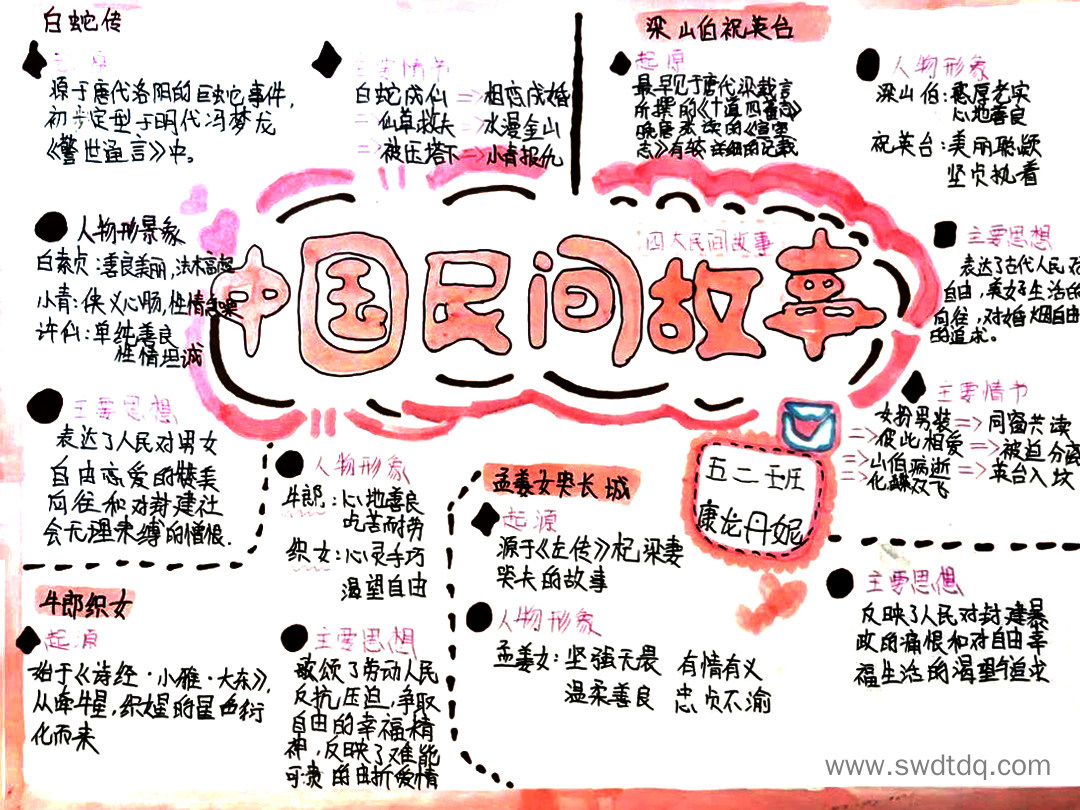 白蛇传
起源
源于唐代洛阳的巨蛇事件,
初步定型于明代冯梦龙
《警世通言》中。
主要情节
白蛇成仙=>相恋成婚
=>仙草救夫=>水漫金山
=>被压塔下=>小青报仇
人物形景象
白素贞:善良美丽,法术高超
小青:侠义心肠,性情急噪
许仙:单纯善良
性情坦诚
主要思想
表达了人民对男女
自由恋爱的赞美
向往和对封建社
会无理束缚的憎恨.
梁山伯祝英台
起原
最早见于唐代梁载言
所撰的《十道四蕃志》
晚唐张读的《宣室
志》有较详细的记载
人物形象
梁山伯:憨厚老实
心地善良
祝英台:美丽聪颖
坚贞执着
主要思想
表达了古代人民
自由,美好生活的
向往,对婚烟自由
的追求。
主要情节
女扮男装=>同窗共读
=>彼此相爱=>被迫分离
=>山伯病逝=>英台入坟
=>化蝶双飞
中国民间故事
四大民间故事
五二班
康龙丹妮
牛郎织女
起源
始于《诗经·小雅·大东》,
从牵牛星,织女星的星色衍
化而来
人物形象
牛郎:心地善良
吃苦而劳
织女:心灵手巧
渴望自由
主要思想
歌颂了劳动人民
反抗压迫,争取
自由的幸福精
神,反映了难能
可贵的曲折爱情
孟姜女哭长城
起源
源于《左传》杞梁妻
哭夫的故事
人物形象
孟姜女:坚强无畏 有情有义
温柔善良 忠贞不渝
主要思想
反映了人民对封建暴
政的痛恨和对自由幸
福生活的渴望追求
www.swdtdq.com